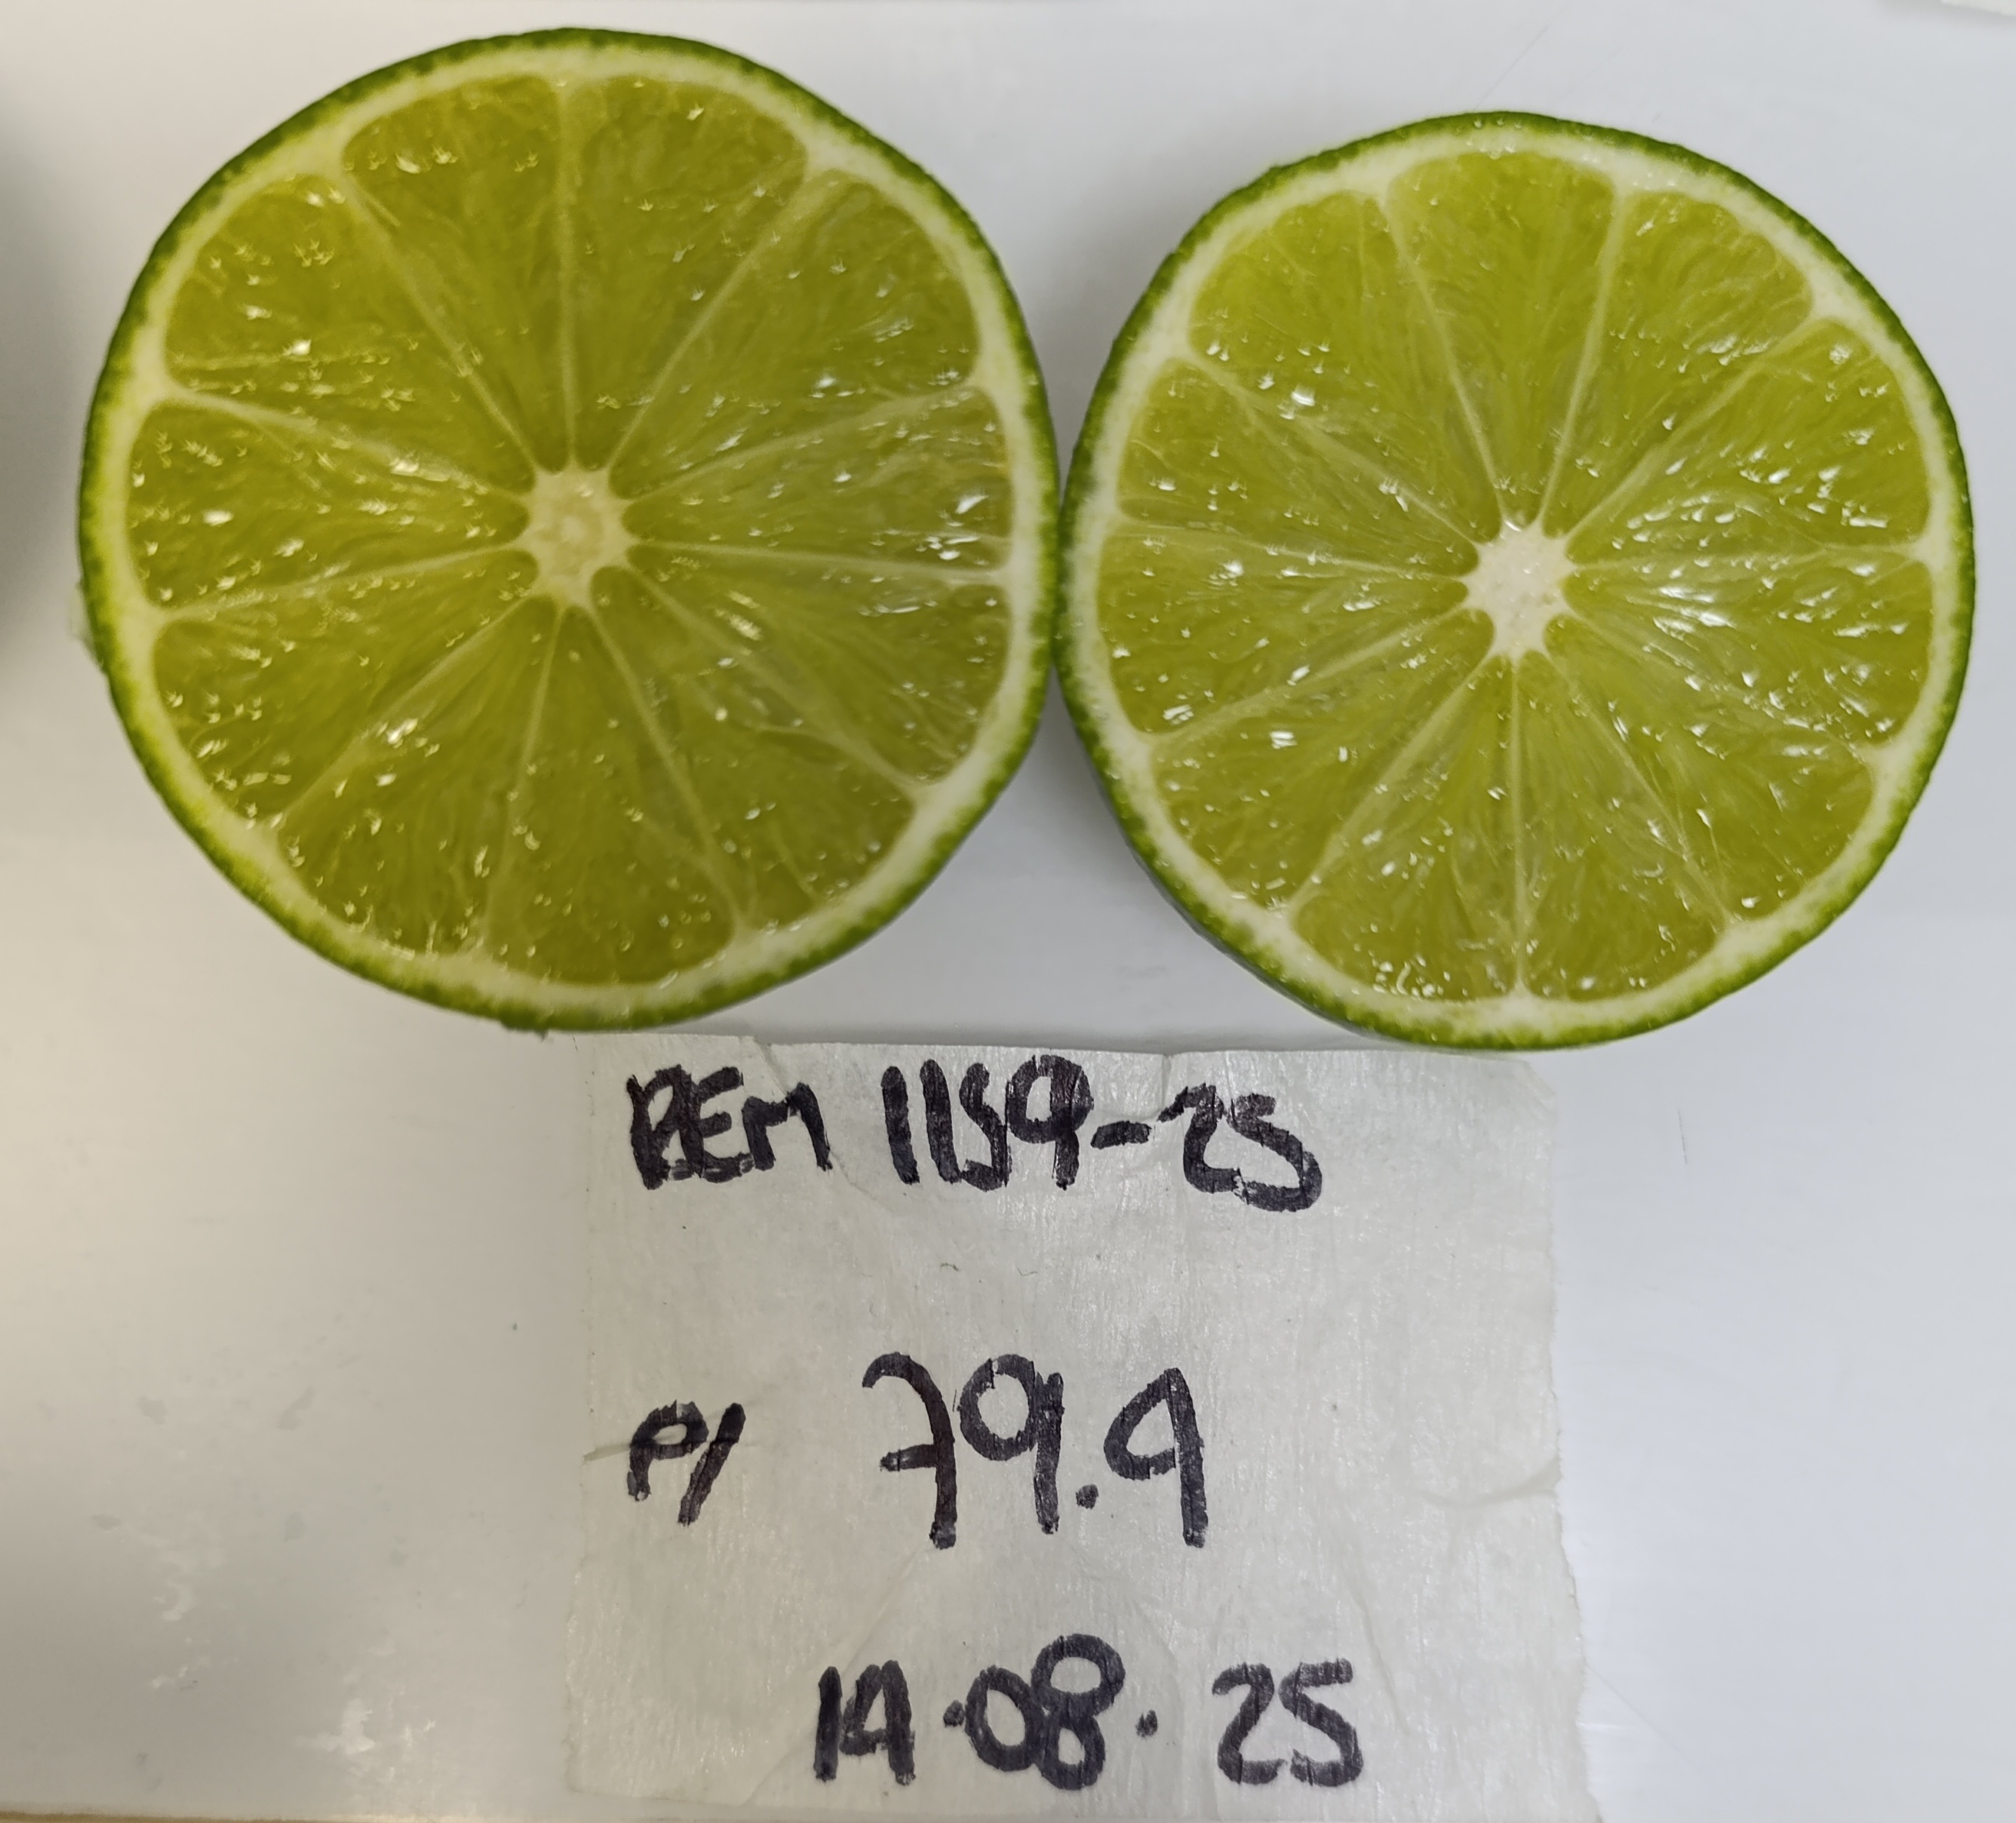 REM 1159-25
P/ 79.9
14.08.25